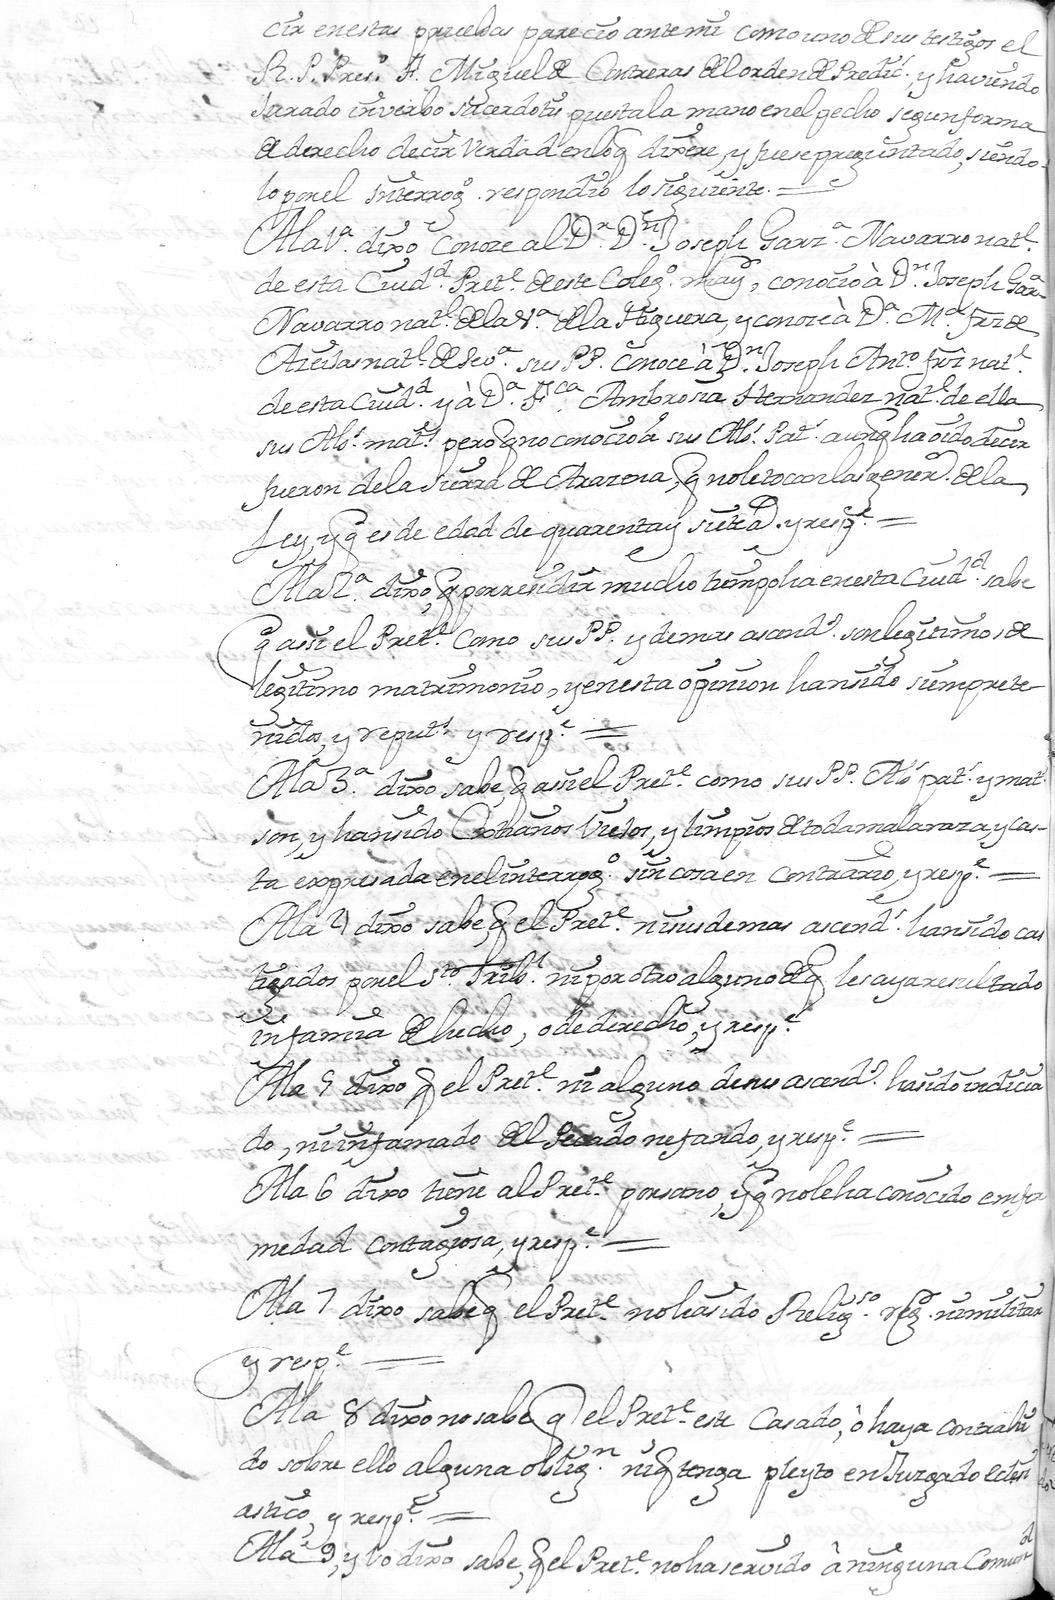 cir en estas pruebas parecio ante mi como uno de sus testigos el
R. P. Pres.º F. Miguel de Contreras del orden de Predic.s y haviendo
jurado in verbo sacerdotis puesta la mano en el pecho segun forma
de derecho decir verdad en lo q dixere, y fuese preguntado, siendo-
lo por el Interrog.º respondio lo siguiente. =
A la 1.ª dixo conoze al D.r D.n Joseph Garz.ª Navarro nat.l
de esta Ciud.d Pret.e de este Coleg.º may.r, conocio à D.n Joseph Garz.ª
Navarro nat.l de la V.ª de la Higuera, y conoce à D.ª M.ª frz de
Azeitas nat.l de Sev.ª sus PP. conoce à D.n Joseph Ant.º frz nat.l
de esta Ciud.d y à D.ª F.ca Ambrosia Hernandez nat.l de ella
sus Ab.s mat.s pero q no conocio à sus Ab.s Pat.s aunq ha oido decir
fueron de la Sierra de Arazena, q no le tocan las gener.s de la
Ley, y q es de edad de quarenta y siete a.s y resp.e =
A la 2.ª dixo, q por residir mucho tiempo ha en esta Ciud.d sabe
q assi el Pret.e como sus PP. y demas ascend.s son legitimos de
legitimo matrimonio, y en esta opinion han sido siempre te-
nidos, y reput.s y resp.e =
A la 3.ª dixo sabe, q assi el Pret.e como sus PP. Ab.s pat.s y mat.s
son, y han sido Cristianos Viejos, y limpios de toda mala raza, y cas-
ta expresada en el interrog.º sin cosa en contrario, y resp.e =
A la 4 dixo sabe, q el Pret.e ni sus demas ascend.s han sido cas
tigados por el S.to Trib.l ni por otro alguno de q les aya resultado
infamia de hecho, o de derecho, y resp.e
A la 5 dixo q el Pret.e ni alguno de sus ascend.s ha sido indicia
do, ni infamado del Pecado nefando, y resp.e =
A la 6 dixo tiene al Pret.e por sano, y q no le ha conocido enfer
medad contagiosa, y resp.e =
A la 7 dixo sabe q el Pret.e no ha sido Relig.so ni militar
y resp.e =
A la 8 dixo no sabe q el Pret.e este Casado, ò haya contrahi
do sobre ello alguna oblig.n ni q tenga pleyto en Juzgado Eclesi
astico, y resp.e =
A la 9, y 10 dixo sabe, q el Pret.e no ha servido à ninguna Comun.d